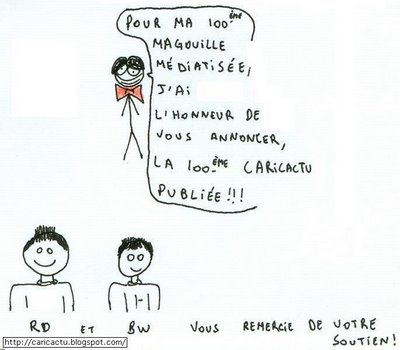 POUR MA 100ÈME
MAGOUILLE
MÉDIATISÉE,
J'AI
L'HONNEUR DE
VOUS ANNONCER,
LA 100ÈME CARICACTU
PUBLIÉE!!!
RD ET BW VOUS REMERCIE DE VOTRE
SOUTIEN!
http://caricactu.blogspot.com/